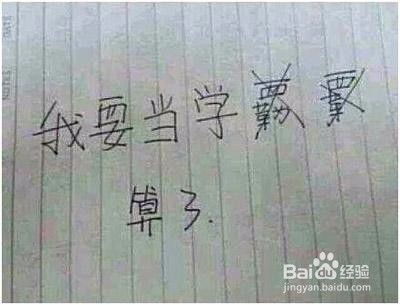 我要当学
算了.
Baidu经验
jingyan.baidu.com